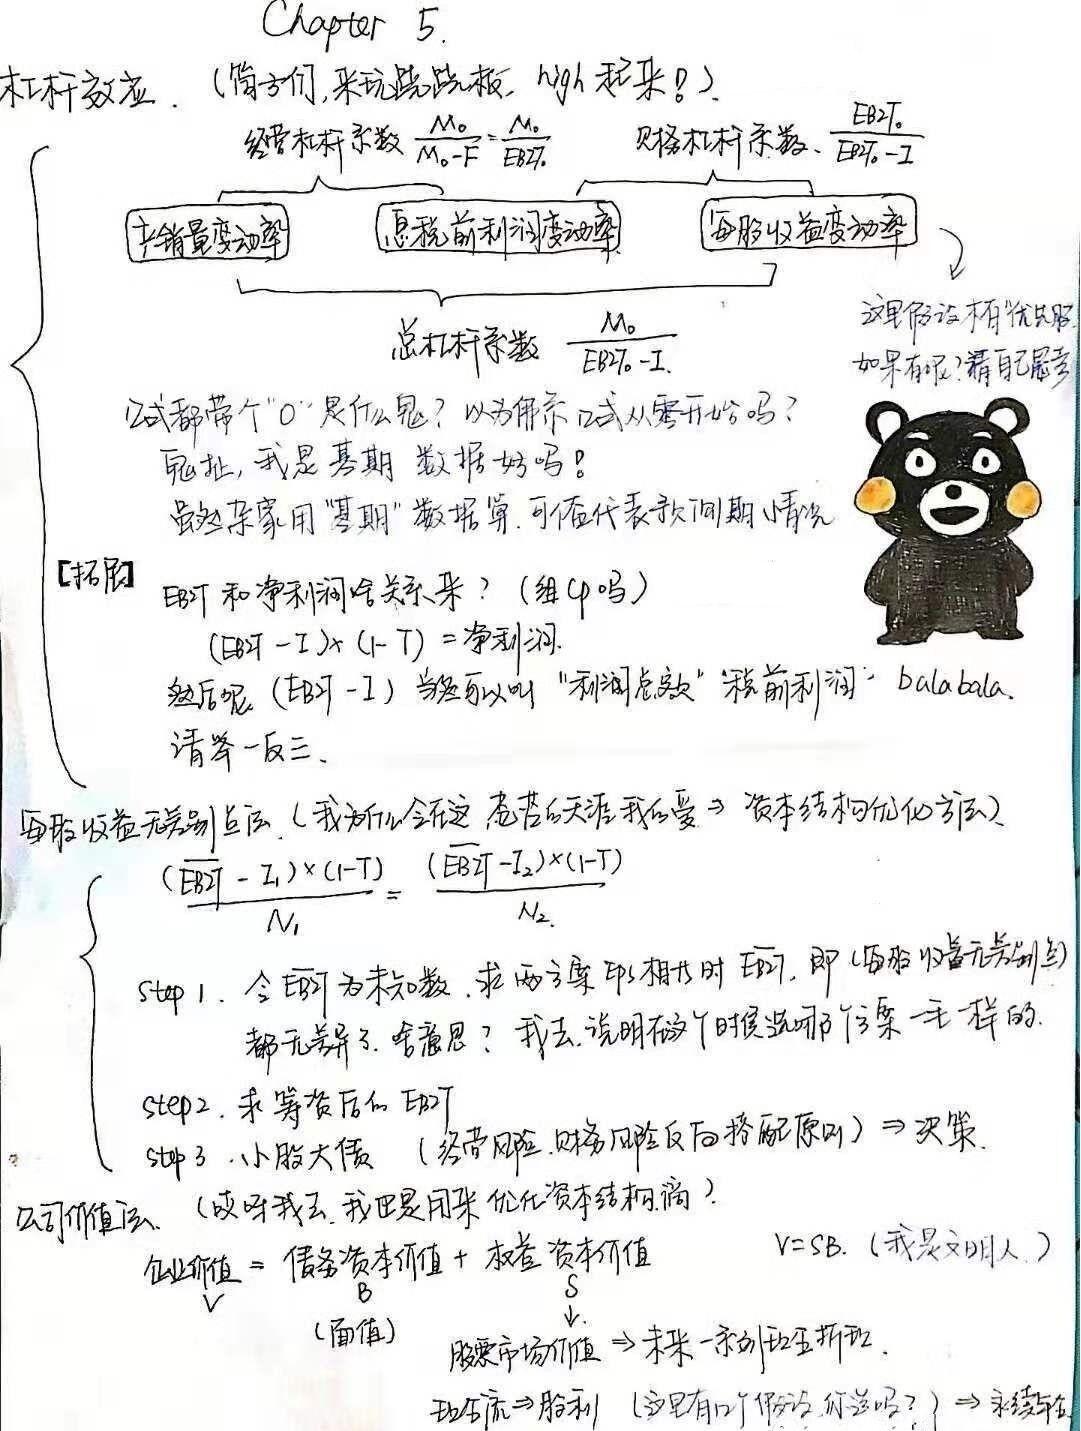 Chapter 5.
杠杆效应. (简方们,来玩跷跷板, high 起来!).
经营杠杆系数 M₀/(M₀-F) = M₀/EBIT₀ 财务杠杆系数. EBIT₀/(EBIT₀-I)
产销量变动率 息税前利润变动率 每股收益变动率
总杠杆系数 M₀/(EBIT₀-I)
这里假设木有"优先股
如果有呢?请自己思考
公式都带个"0"是什么鬼? 以为佛系公式从零开始吗?
鬼扯, 我是基期数据好吗!
虽然杂家用"基期"数据算, 可 代表 期情况
【拓展】 EBIT 和净利润啥关系来? (组CP吗)
(EBIT-I)×(1-T) = 净利润.
然后呢 (EBIT-I) 当然可以叫 "利润总额" "税前利润" balabala.
请举一反三.
每股收益无差别点法. (我为什么会在这 我的爱⇒ 资本结构优化方法).
(EBIT-I₁)×(1-T)/N₁ = (EBIT-I₂)×(1-T)/N₂.
step 1. 令EBIT为未知数, 求两方案EPS相等时EBIT, 即 (每股收益无差别点)
都无差异了. 啥意思? 我去. 说明在这个时候选哪个方案一毛一样的.
step2. 求筹资后的 EBIT
step 3. 小股大债 (经营风险.财务风险反向搭配原则) ⇒ 决策.
公司价值法. (哎呀我去. 我也是用来优化资本结构滴).
企业价值 = 债务资本价值 + 权益资本价值 V=SB. (我是文明人.)
V B S
(面值) ↓
股票市场价值 ⇒ 未来一系列现金折现.
现金流⇒股利 (这里有口个假设.你造吗?) ⇒ 永续年金